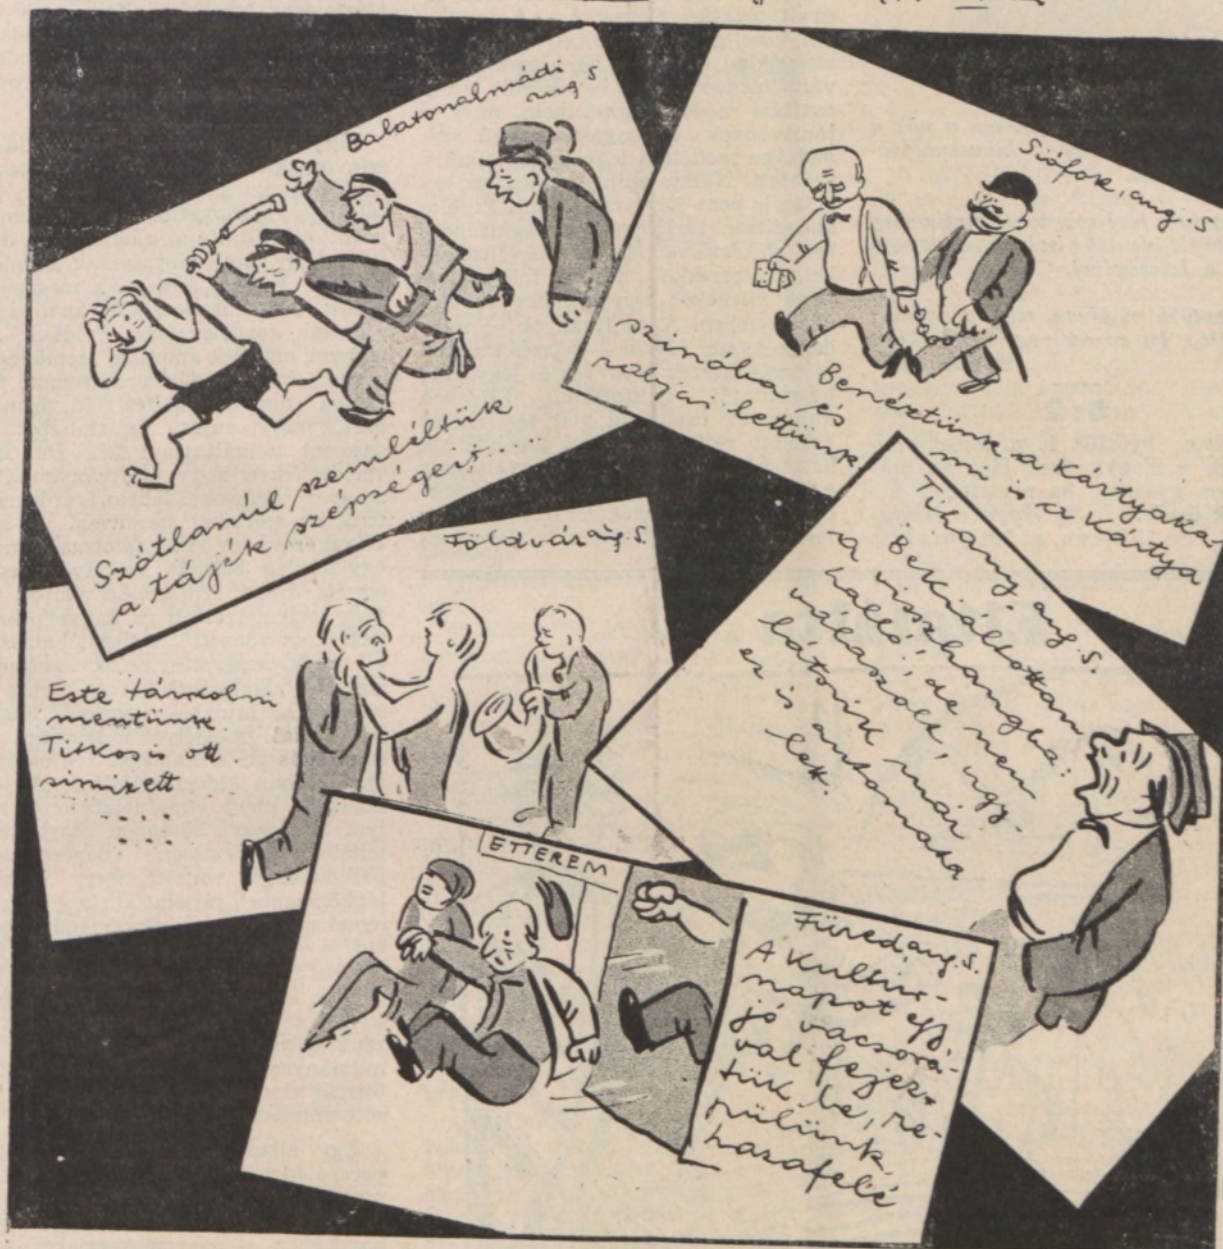 Balatonalmádi
aug 5
Szótlanúl szemléltük
a tájék szépségeit...
Siófok, aug. 5
Benéztünk a kártyaka-
szinóba és mi is a kártya
rabjai lettünk
Földvár aug. 5.
Este táncolni
mentünk
Titkos is ott
simizett
.....
....
Tihany, aug. 5.
Bekiáltottam
a visszhangba:
"halló", de nem
válaszolt, úgy-
látszik már
ez is automata
lett.
ÉTTEREM
Füred, aug. 5.
A kultúr-
napot egy
jó vacsorá-
val fejez-
tük be, re-
pülünk
hazafelé